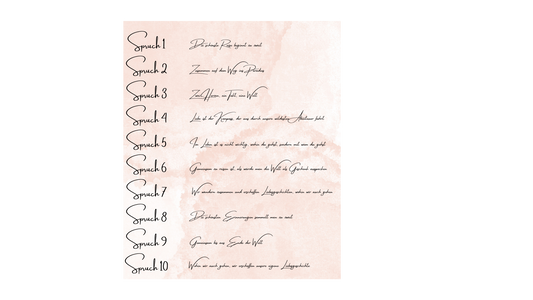 Spruch 1 Die schönste Reise beginnt zu zweit
Spruch 2 Zusammen auf dem Weg ins Paradies
Spruch 3 Zwei Herzen, ein Ziel, eine Welt
Spruch 4 Liebe ist der Kompass, der uns durch unsere schönsten Abenteuer führt
Spruch 5 Im Leben ist es nicht wichtig, wohin du gehst, sondern mit wem du gehst
Spruch 6 Gemeinsam zu reisen ist, als würde man die Welt als Geschenk auspacken
Spruch 7 Wir wandern zusammen und erschaffen Liebesgeschichten, wohin wir auch gehen
Spruch 8 Die schönsten Erinnerungen sammelt man zu zweit
Spruch 9 Gemeinsam bis ans Ende der Welt
Spruch 10 Wohin wir auch gehen, wir erschaffen unsere eigene Liebesgeschichte